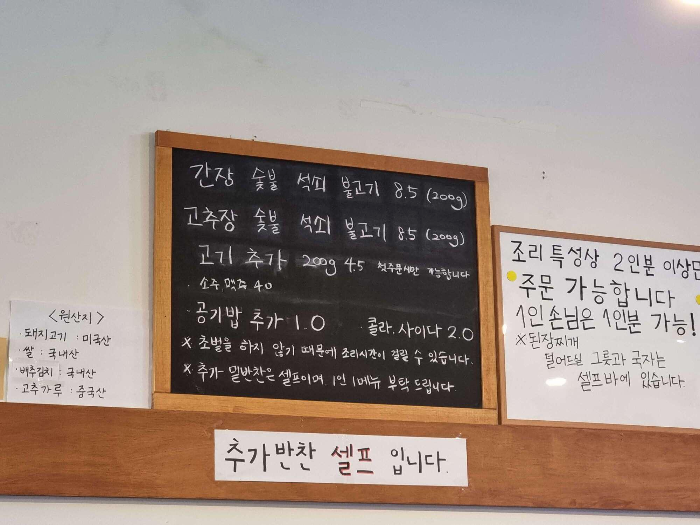 간장 숯불 석쇠 불고기 8.5 (200g)
고추장 숯불 석쇠 불고기 8.5 (200g)
고기 추가 200g 4.5 첫주문시만 가능합니다
· 소주 맥주 4.0
· 공기밥 추가 1.0 · 콜라. 사이다 2.0
※ 초벌을 하지 않기 때문에 조리시간이 걸릴 수 있습니다.
※ 추가 밑반찬은 셀프이며 1인 1메뉴 부탁드립니다.
<원산지>
· 돼지고기 : 미국산
· 쌀 : 국내산
· 배추김치 : 국내산
· 고추가루 : 중국산
조리특성상 2인분 이상만
주문 가능합니다
1인 손님은 1인분 가능!
※된장찌개
덜어드실 그릇과 국자는
셀프바에 있습니다.
추가반찬 셀프 입니다.